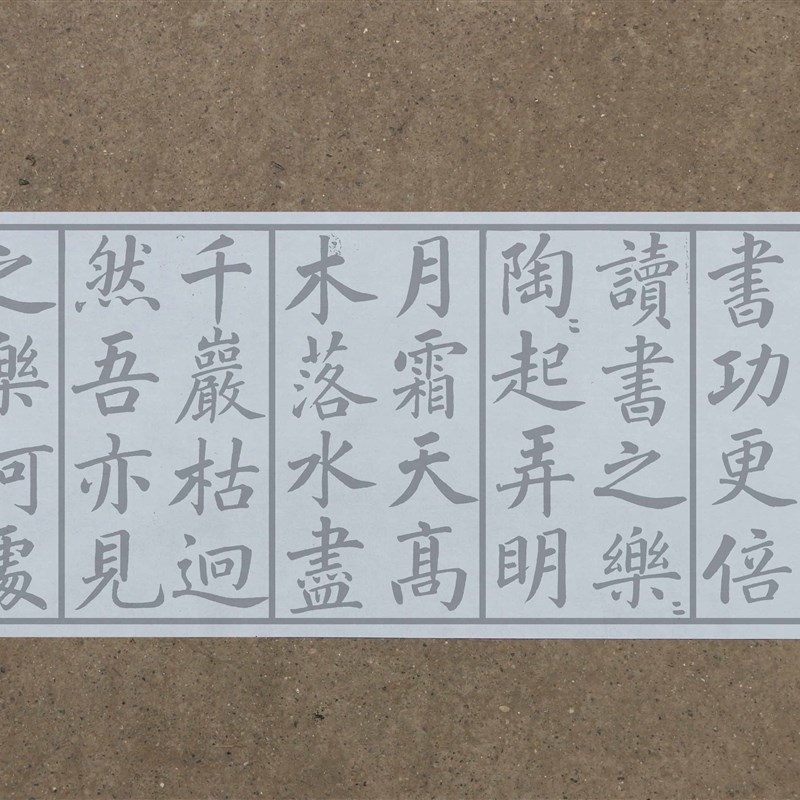 書功更倍
讀書之樂〻
陶〻起弄明
月霜天髙
木落水盡
千巖枯迥
然吾亦見
之樂何處